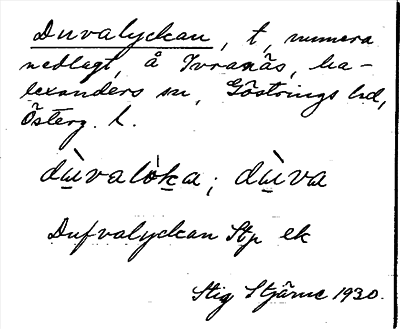 Duvalyckan, t, numera
nedlagt, å Yvranäs, ha-
lexanders sn, Göstrings hd,
Österg. l.
dùvalòka; dùva
Dufvalyckan Stp ek
Stig Stjärne 1930.